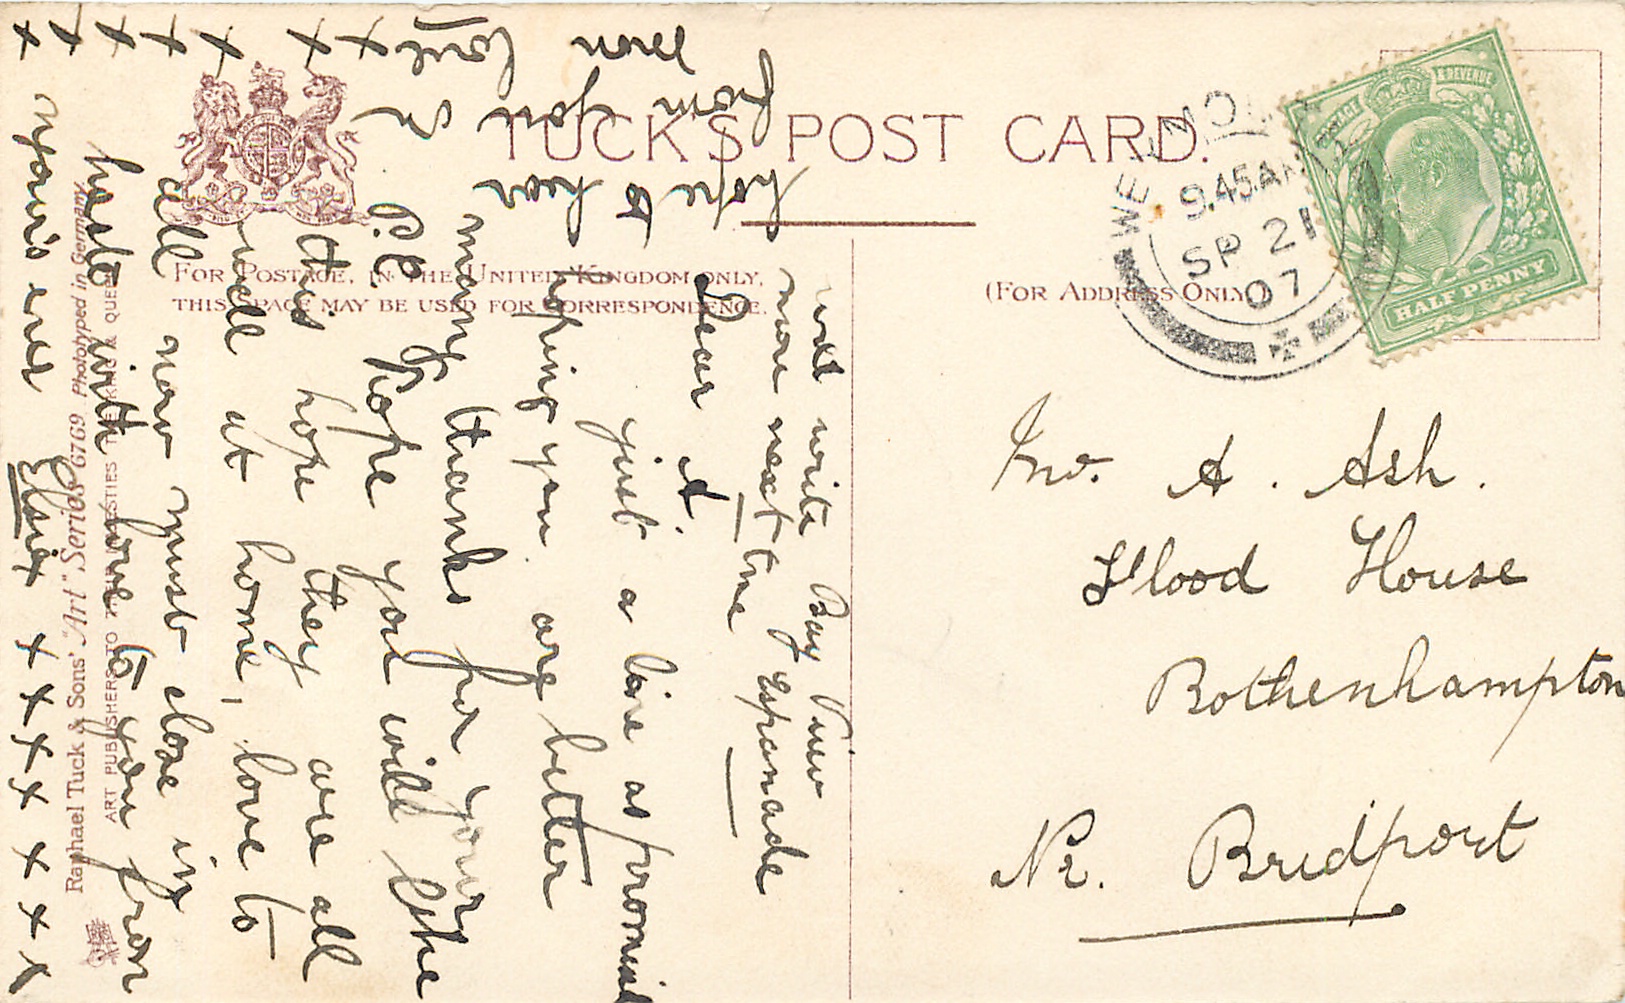 TUCK'S POST CARD.
FOR POSTAGE, IN THE UNITED KINGDOM ONLY,
THIS SPACE MAY BE USED FOR CORRESPONDENCE.
(FOR ADDRESS ONLY)
WEYMOUTH
9.45AM
SP 21
07
POSTAGE & REVENUE
HALF PENNY
Mr. A. Ash.
Flood House
Bothenhampton
Nr. Bridport
Bay View
Espanade
will write
more next time
Dear A.
just a line as promised
oping you are better
many thanks for your
P.C. hope you will like
this hope they are all
well at home, love to
all now must close in
haste with love to you from
yours ever Elsie x x x x x x x x
hope to hear
from you
soon
love
x x x x x x x
Raphael Tuck & Sons' "Art" Series 6769 Photyped in Germany
ART PUBLISHERS TO THEIR MAJESTIES THE KING & QUEEN